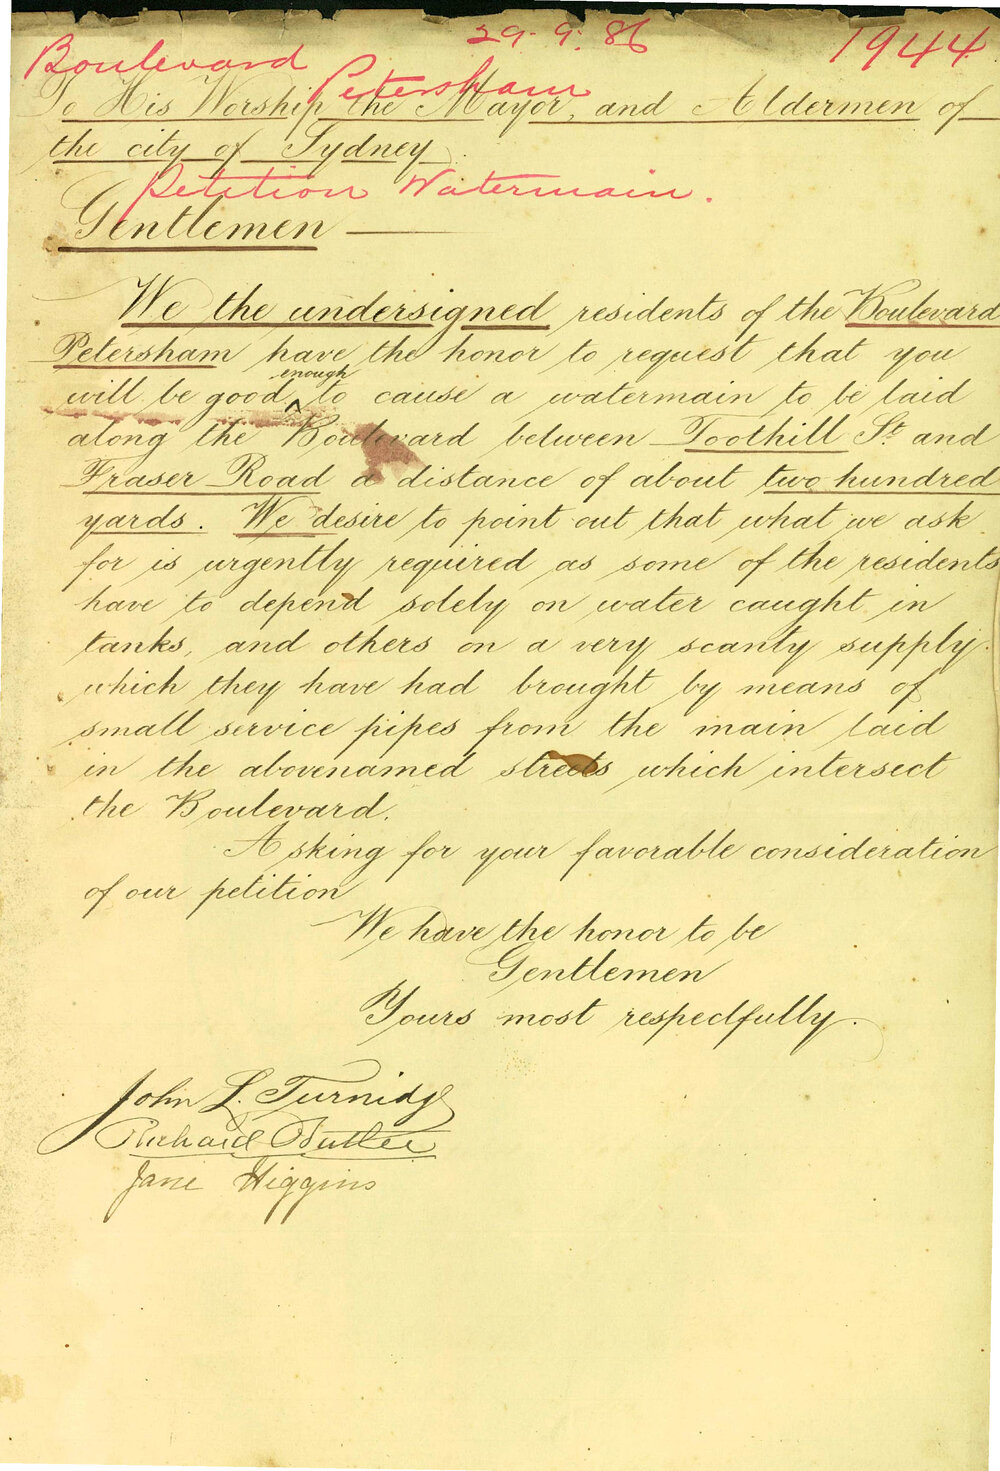 29. 9. 86
1944
Boulevard
Petersham
To His Worship the Mayor, and Aldermen of
the city of Sydney.
Petition Watermain.
Gentlemen
We the undersigned residents of the Boulevard
Petersham have the honor to request that you
will be good enough to cause a watermain to be laid
along the Boulevard between Toothill St. and
Fraser Road a distance of about two hundred
yards. We desire to point out that what we ask
for is urgently required as some of the residents
have to depend solely on water caught in
tanks, and others on a very scanty supply
which they have had brought by means of
small service pipes from the main laid
in the abovenamed streets which intersect
the Boulevard.
Asking for your favorable consideration
of our petition
We have the honor to be
Gentlemen
Yours most respectfully.
John L. Turnidge
Richard Butler
Jane Higgins